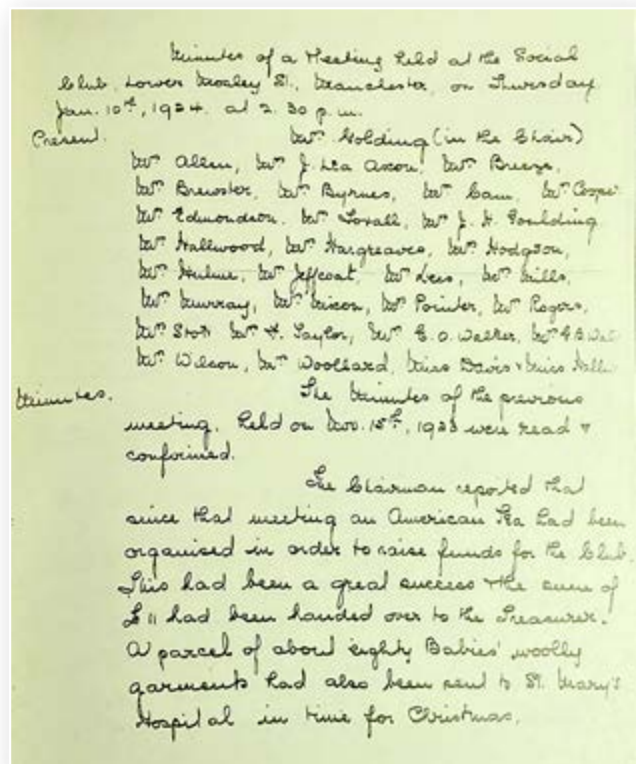 Minutes of a Meeting held at the Social
Club, Lower Mosley St., Manchester, on Thursday
Jan. 10th, 1924. at 2.30 p.m.
Present. Mrs Golding (in the Chair)
Mrs Allen, Mrs J. Lea Axon, Mrs Breeze,
Mrs Brewster, Mrs Byrnes, Mrs Cam, Mrs
Mrs Edmondson. Mrs Foxall, Mrs J. H. Goulding
Mrs Hallwood, Mrs Hargreaves, Mrs Hodgson,
Mrs Hulme, Mrs Jeffcoat, Mrs Lees, Mrs Mills,
Mrs Murray, Mrs Nixon, Mrs Pointer, Mrs Rogers,
Mrs Stott Mrs H. Taylor, Mrs E. O. Walker, Mrs
Mrs Wilson, Mrs Woollard, Miss Davis & Miss
Minutes. The Minutes of the previous
meeting, held on Nov. 15th, 1923 were read &
confirmed.
The Chairman reported that
since that meeting an American Tea had been
organised in order to raise funds for the Club.
This had been a great success & the sum of
£11 had been handed over to the Treasurer.
A parcel of about eighty Babies' woolly
garments had also been sent to St. Mary's
Hospital in time for Christmas.